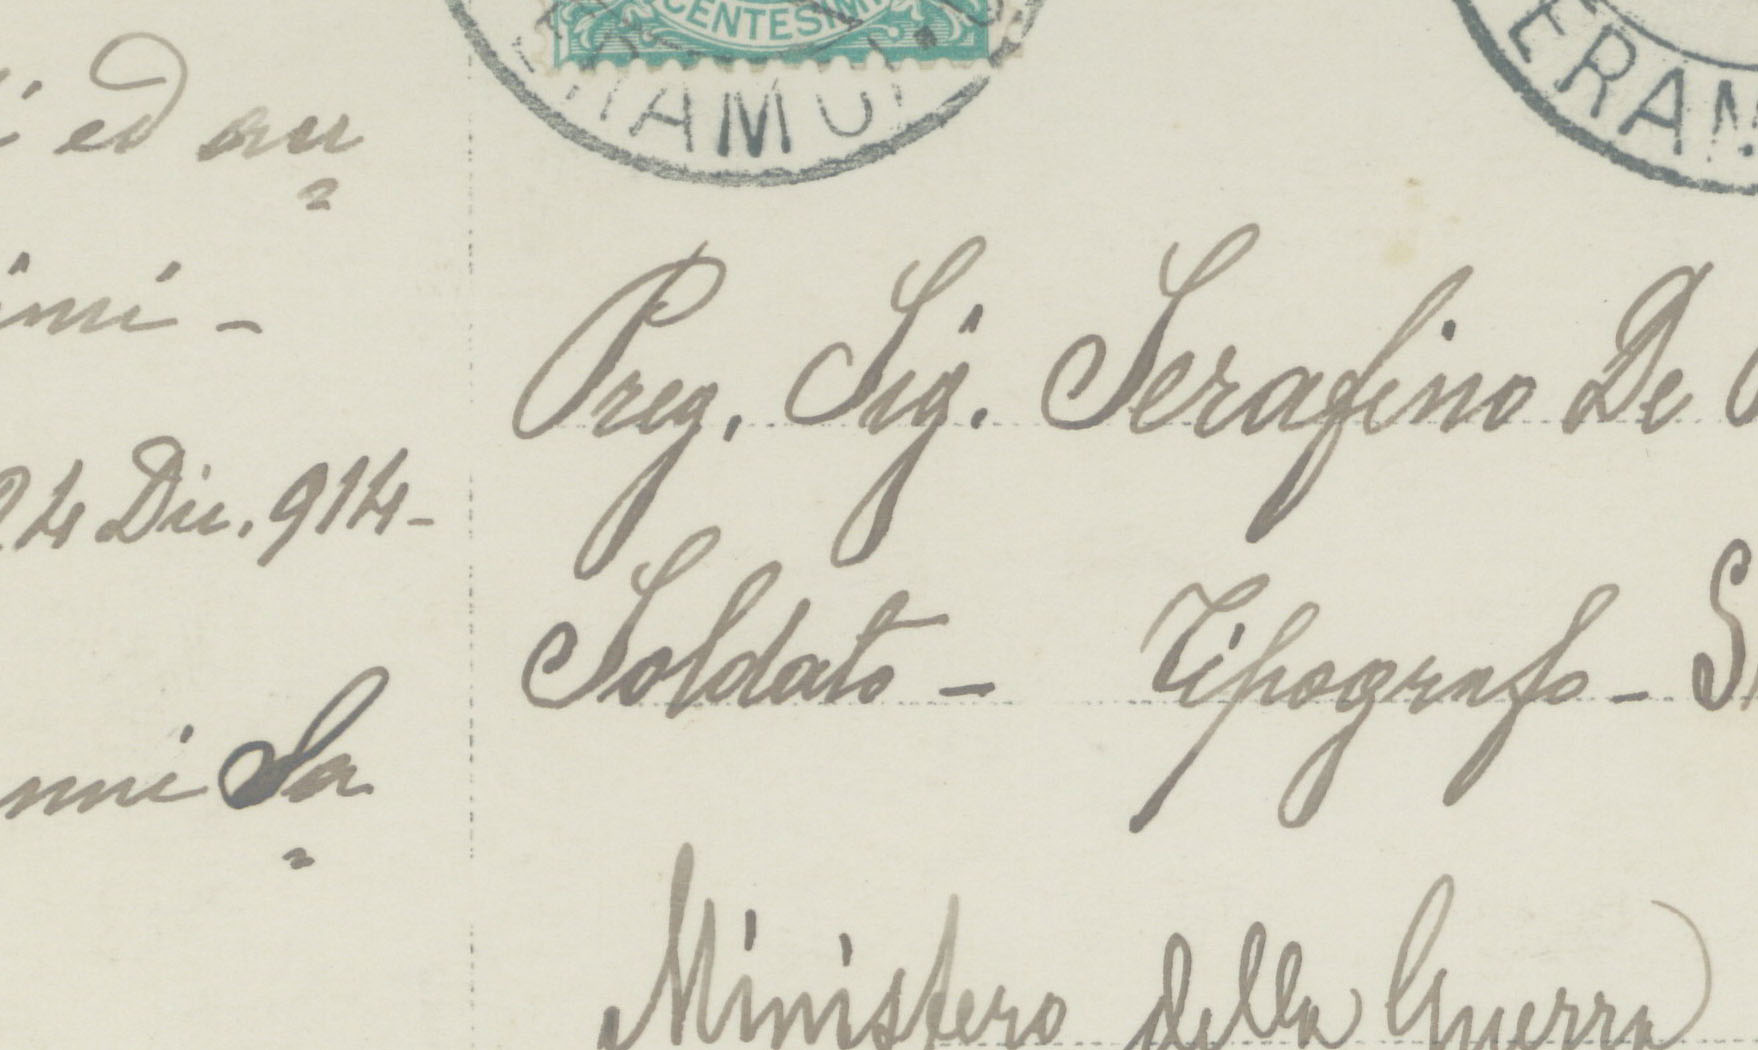 CENTESIMI
ERAM
ed au
imi -
24 Dic. 914-
nni Sa
Preg. Sig. Serafino De
Soldato - Tipografo -
Ministero della Guerra